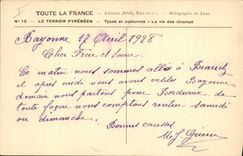 TOUTE LA FRANCE
N° 12 — LE TERROIR PYRÉNÉEN — Types et coutumes - La vie des champs
Bayonne 17 Avril 1928
Cher Frere et soeur
Ce matin nous sommes allés à Biarritz
et apres midi nous avons visité Bayonne
demain nous partons pour Bordeaux de
toute façon nous comptons rentrer samedi
ou dimanche.
Bonnes causettes